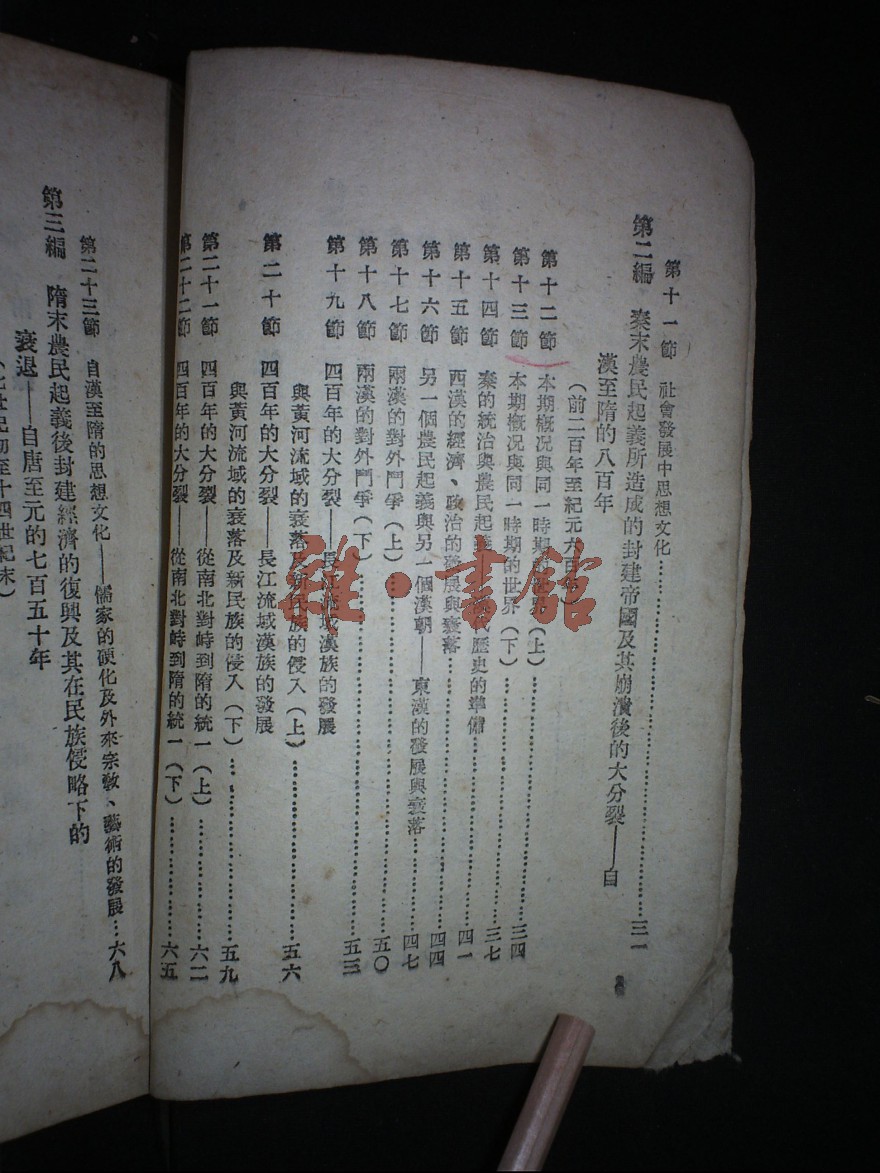 第十一節 社會發展中思想文化……三一
第二編 秦末農民起義所造成的封建帝國及其崩潰後的大分裂——自
漢至隋的八百年
(前二百年至紀元六百年)
第十二節 本期概况與同一時期的世界(上)……三四
第十三節 本期概况與同一時期的世界(下)……三七
第十四節 秦的統治與農民起義——漢代歷史的準備……四一
第十五節 西漢的經濟、政治的發展與衰落……四四
第十六節 另一個農民起義與另一個漢朝——東漢的發展與衰落……四七
第十七節 兩漢的對外鬥爭(上)……五〇
第十八節 兩漢的對外鬥爭(下)……五三
第十九節 四百年的大分裂——長江流域漢族的發展
與黃河流域的衰落及新民族的侵入(上)……五六
第二十節 四百年的大分裂——長江流域漢族的發展
與黃河流域的衰落及新民族的侵入(下)……五九
第二十一節 四百年的大分裂——從南北對峙到隋的統一(上)……六二
第二十二節 四百年的大分裂——從南北對峙到隋的統一(下)……六五
第二十三節 自漢至隋的思想文化——儒家的硬化及外來宗教、藝術的發展…六八
第三編 隋末農民起義後封建經濟的復興及其在民族侵略下的
衰退——自唐至元的七百五十年
(七世紀初至十四世紀末)
雜·書館